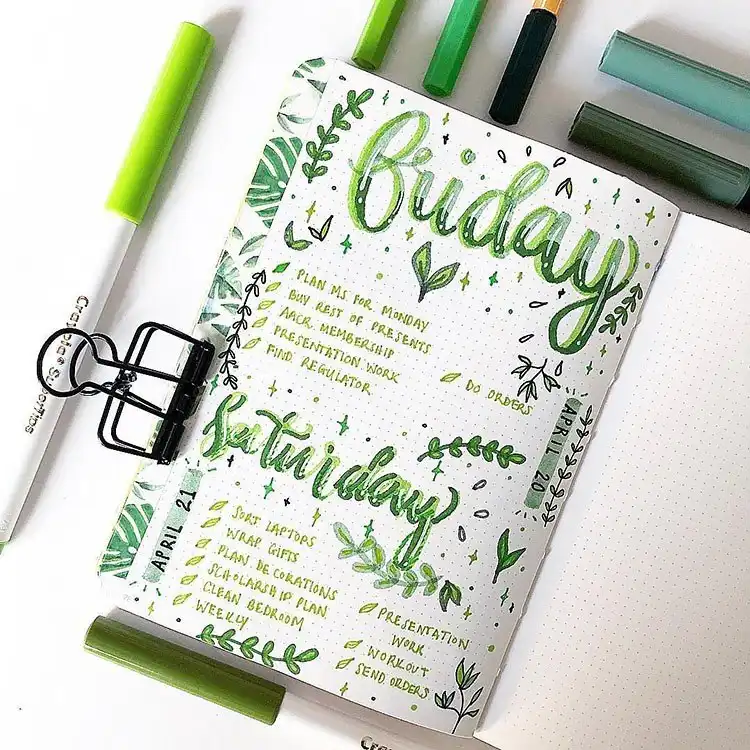 Friday
PLAN MS. FOR MONDAY
BUY REST OF PRESENTS
AACR. MEMBERSHIP
PRESENTATION WORK
FIND REGULATOR
DO ORDERS
APRIL 20
Saturday
APRIL 21
SORT LAPTOPS
WRAP GIFTS
PLAN DECORATIONS
SCHOLARSHIP PLAN
CLEAN BEDROOM
WEEKLY
PRESENTATION
WORK
WORKOUT
SEND ORDERS
Crayola SuperTips